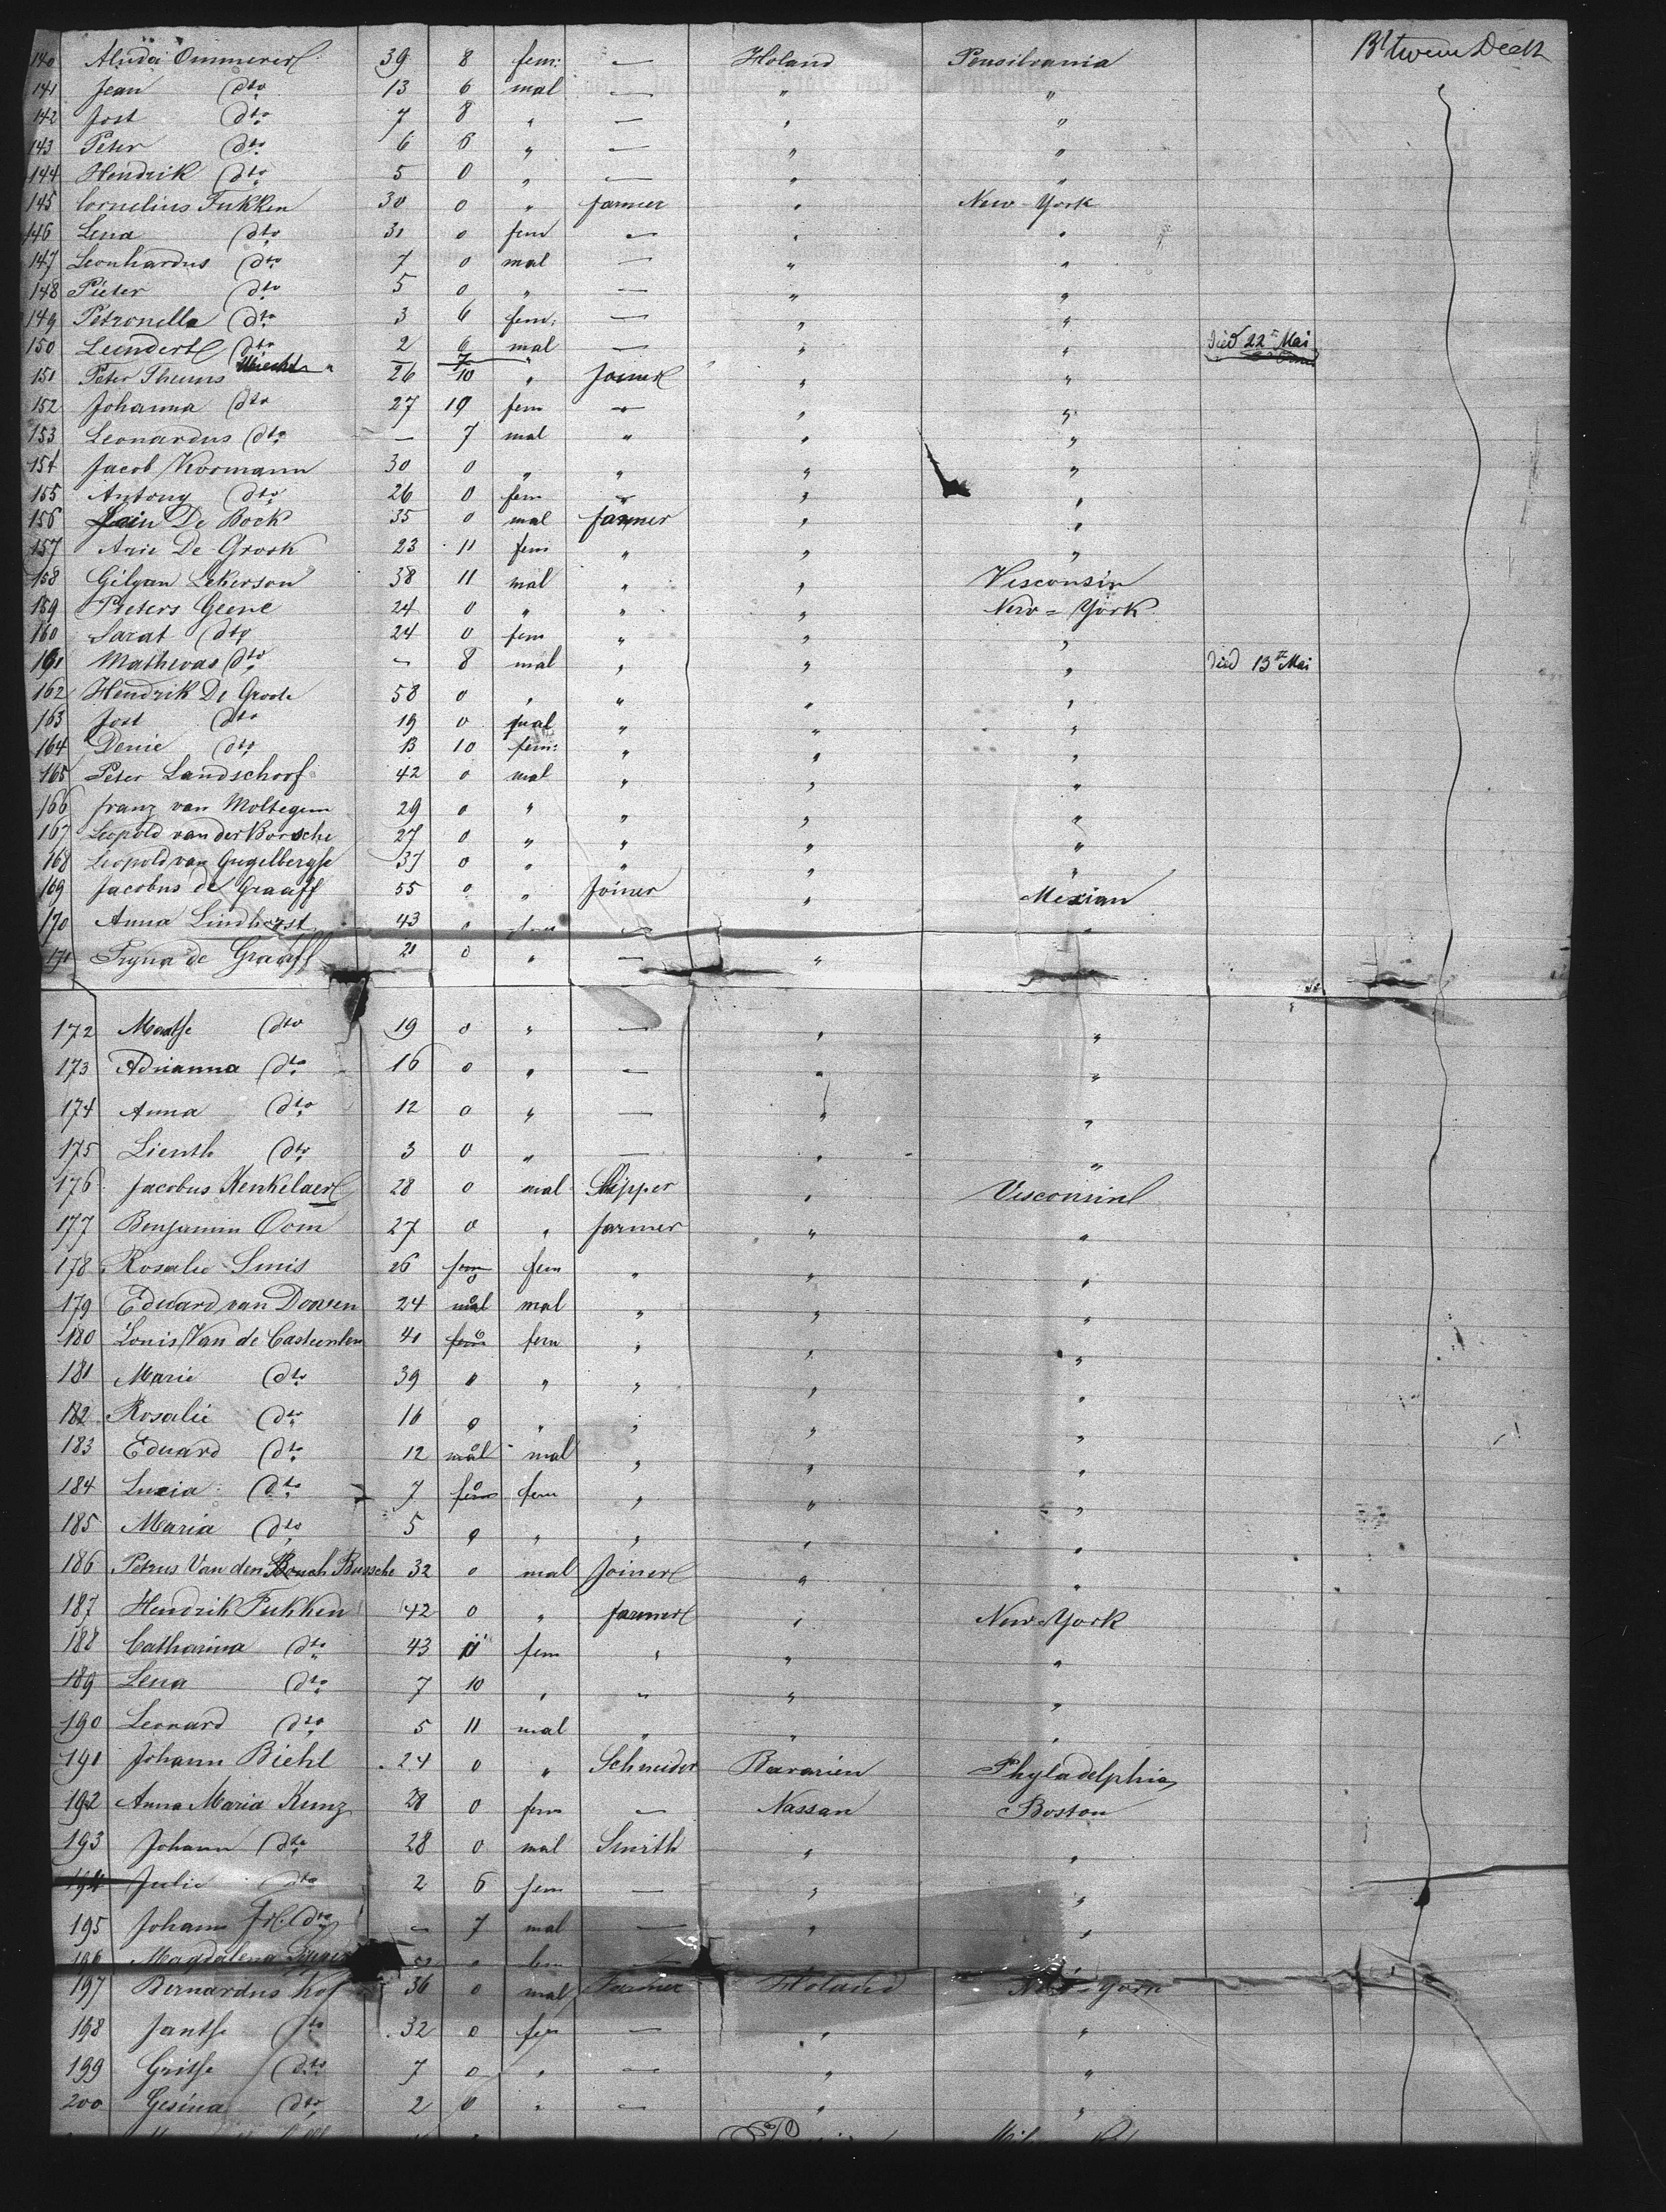 140 Aluda Ommerer 39 8 fem: — Holand Pensilvania Bltween Deck
141 Jean dto 13 6 mal — " "
142 Jost dto 7 8 " — " "
143 Peter dto 6 6 " — " "
144 Hendrik dto 5 0 " — " "
145 Cornelius Fukken 30 0 " farmer " New-York
146 Lena dto 31 0 fem — " "
147 Leonhardus dto 7 0 mal — " "
148 Pieter dto 5 0 " — " "
149 Petronella dto 3 6 fem: — " "
150 Leendert dto 2 6 mal — " " died 22t Mai
151 Peter Theuns 26 10 " Joiner " "
152 Johanna dto 27 19 fem — " "
153 Leonardus dto — 7 mal " " "
154 Jacob Voormann 30 0 " " " "
155 Antony dto 26 0 fem — " "
156 Jain De Bock 35 0 mal farmer " "
157 Arie De Grook 23 11 fem " " "
158 Gilyan Lekerson 38 11 mal " " Visconsin
159 Pieters Geene 24 0 " " " New-York
160 Sarat dto 24 0 fem " " "
161 Mathevas dto — 8 mal " " " died 13t Mai
162 Hendrik De Groote 58 0 " " " "
163 Jost dto 19 0 mal " " "
164 Denie dto 13 10 fem: " " "
165 Peter Landschoof 42 0 mal " " "
166 franz van Moltegem 29 0 " " " "
167 Leopold van der Borsche 27 0 " " " "
168 Leopold van Gugelbergse 37 0 " " " "
169 Jacobus de Graaff 55 0 " Joiner " Mexian
170 Anna Lindhorst 43 0 fem — "
171 Pryna de Graaff 21 0 " — "
172 Maatje dto 19 0 " — " "
173 Adrianna dto 16 0 " — " "
174 Anna dto 12 0 " — " "
175 Lienth dto 3 0 " — " "
176 Jacobus Kenkelaer 28 0 mal Skipper " Visconsin
177 Benjamin Oom 27 0 " farmer " "
178 Rosalie Smis 26 fem 0 fem " " "
179 Eduard van Dooren 24 mal 0 mal " " "
180 Louis Van de Casteenten 41 fem 0 fem " " "
181 Marie dto 39 0 " " " "
182 Rosalie dto 16 0 " " " "
183 Eduard dto 12 mal 0 mal " " "
184 Luxia dto 7 fem 0 fem " " "
185 Maria dto 5 0 " " " "
186 Petrus Van den Bussche 32 0 mal Joiner " "
187 Hendrik Fukken 42 0 " farmer " New-York
188 Catharina dto 43 0 fem " " "
189 Lena dto 7 10 " " " "
190 Leonard dto 5 11 mal " " "
191 Johann Biehl 24 0 " Schneider Bavarien Phyladelphia
192 Anna Maria Kunz 28 0 fem — Nassau Boston
193 Johann dto 28 0 mal Smith " "
194 Julie dto 2 6 fem — " "
195 Johann dto — 7 mal — " "
196 Magdalena 0 fem — "
197 Bernardus Kof 36 0 mal Farmer Holand New-York
198 Jantje dto 32 0 fem — " "
199 Gritje dto 7 0 " — " "
200 Gesina dto 2 0 " — " "